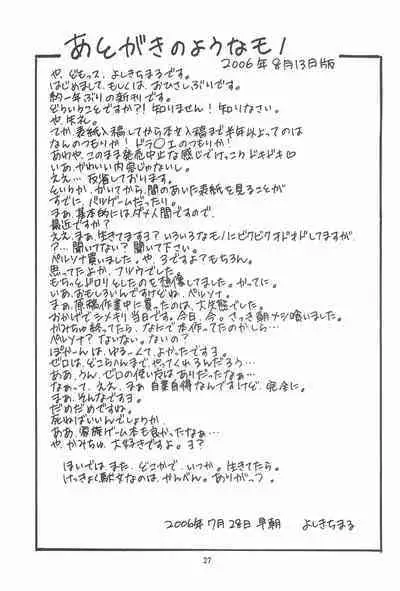 あとがきのようなモノ
2006年8月13日版
や、どもっス、よしきちまるです。
はじめまして、もしくは、おひさしぶりです。
約一年ぶりの新刊です。
どういうことですか?!知りません!知りなさい。
や、失礼。
てか、表紙入稿してから本文入稿まで半年以上ってのは
なんのつもりか!ドラ○エのつもりか!
あわや、このまま発売中止な感じでけっこうドキドキ♡
いあ、かわいい内容じゃないし。
ええ…反省しております。
というか、かいてから、間のあいた表紙を見ることが
すでに、バルゲームだったり。
まぁ、基本的にはダメ人間ですので、
最近ですか?
ええ、まぁ、生きてますヨ?いろいろなモノにビクビクオドオドしてますが、
?…聞いてない?聞いて下さい。
ペルソナ買いました。や、3ですよ?もちろん。
思ってたよか、フツウでした。
もちっとドロリとしたのを想像してました。かってに。
いあ、おもしろいんですけどね、ペルソナ。
まぁ、原稿作業中に買ったのは、大失態でした。
おかげでシメキリ当日です。今日。今。さっき朝メシ喰いました。
かみちゅ終ってたら、なにで本作ってたのかしら…
ペルソナ?ないない。ないの?
ぽやーんは、ゆるーくて、よかったですヨ。
ゼロは、どこらへんまで、やってくれるんだろう…
ああ、うん、ゼロの使い魔はありだったなぁ…
なぁって、ええ、まぁ自業自得なんですけど、完全に。
まぁ、そんなですヨ。
だめだめですね。
死ねばいいんでしょうか。
ああ、家族ゲーム本も良かったなぁ…
や、かみちゅ、大好きですよ。ヨ?
ほいでは、また、どこかで、いつか。生きてたら。
けっきょく駄文なのは、かんべん。ありがとっつ。
2006年7月28日早朝 よしきちまる
27